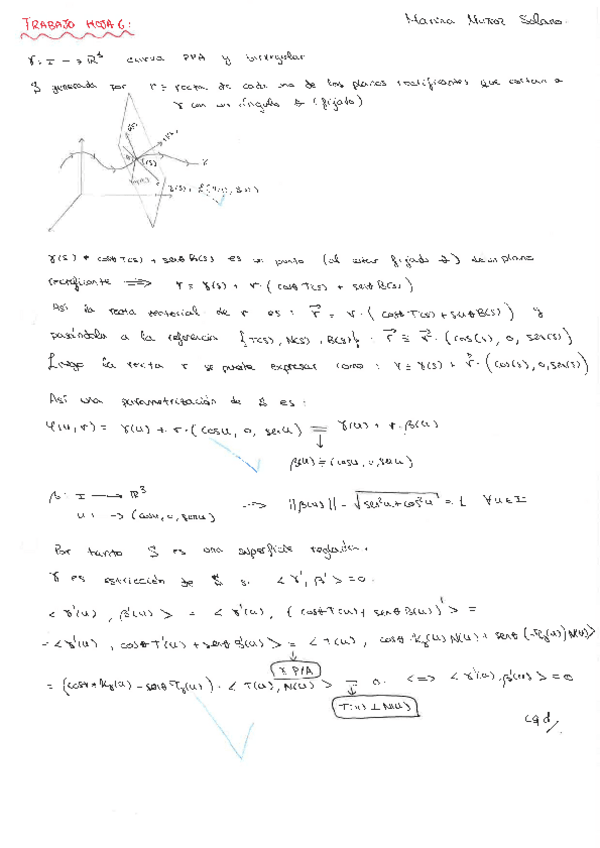 TRABAJO HOJA 6:
Marina Muñoz Solano.
γ: I → ℝ³ curva PPA y birregular
S generada por r ≡ rectas de cada uno de los planos rectificantes que cortan a
γ con un ángulo θ (fijado)
γ(s)
γ(s) + L{T(s), B(s)}
γ(s) + cosθ T(s) + senθ B(s) es un punto (al estar fijado θ) de un plano
rectificante ⟹ r ≡ γ(s) + r·(cosθ T(s) + senθ B(s))
Así la recta vectorial de r es: r⃗ = r·(cosθ T(s) + senθ B(s)) y
pasándola a la referencia {T(s), N(s), B(s)}: r⃗ ≡ r⃗·(cos(s), 0, sen(s))
Luego la recta r se puede expresar como: r ≡ γ(s) + r⃗·(cos(s), 0, sen(s))
Así una parametrización de S es:
φ(u,r) = γ(u) + r·(cosu, 0, senu) = γ(u) + r·β(u)
β(u) = (cosu, 0, senu)
β: I → ℝ³
u ↦ (cosu, 0, senu) ⇝ ||β(u)|| = √sen²u+cos²u = 1 ∀u∈I
Por tanto S es una superficie reglada.
γ es estricción de S si <γ', β'> = 0.
<γ'(u), β'(u)> = <γ'(u), (cosθ T(u) + senθ B(u))'> =
= <γ'(u), cosθ T'(u) + senθ B'(u)> = <T(u), cosθ·Kγ(u) N(u) + senθ (-τγ(u)) N(u)>
γ PPA
= (cosθ Kγ(u) - senθ τγ(u))·<T(u), N(u)> = 0. <=> <γ'(u), β'(u)> = 0
T(u) ⊥ N(u)
cqd